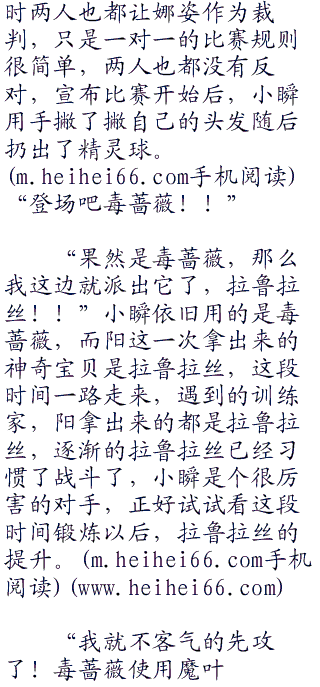 时两人也都让娜姿作为裁
判，只是一对一的比赛规则
很简单，两人也都没有反
对，宣布比赛开始后，小瞬
用手撇了撇自己的头发随后
扔出了精灵球。
(m.heihei66.com手机阅读)
“登场吧毒蔷薇！！”
“果然是毒蔷薇，那么
我这边就派出它了，拉鲁拉
丝！！”小瞬依旧用的是毒
蔷薇，而阳这一次拿出来的
神奇宝贝是拉鲁拉丝，这段
时间一路走来，遇到的训练
家，阳拿出来的都是拉鲁拉
丝，逐渐的拉鲁拉丝已经习
惯了战斗了，小瞬是个很厉
害的对手，正好试试看这段
时间锻炼以后，拉鲁拉丝的
提升。(m.heihei66.com手机
阅读)(www.heihei66.com)
“我就不客气的先攻
了！毒蔷薇使用魔叶